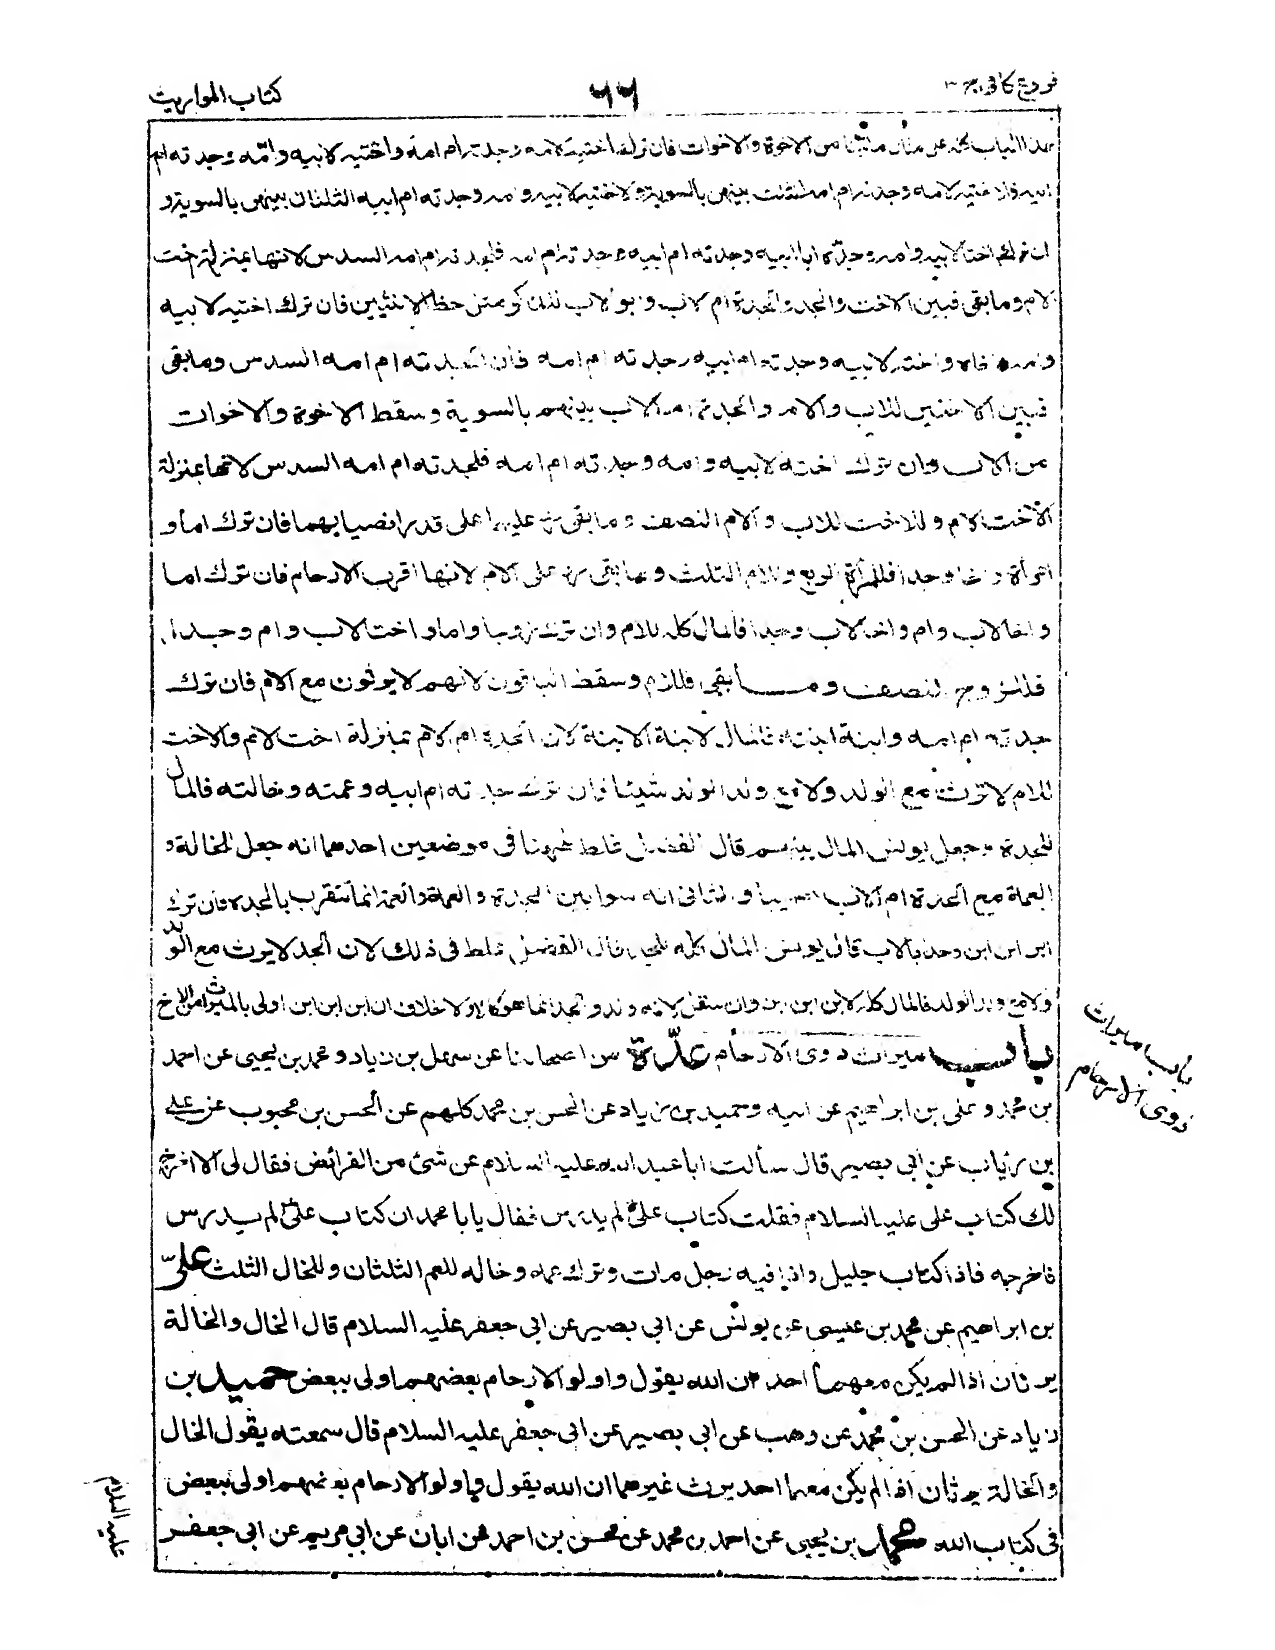 فروع كافى ج ٣
٦٦
كتاب المواريث
هذا الباب كله على مثال ما بينا من الاخوة والاخوات فان ترك اختيه لامه وجدته ام امه واختيه لابيه وامه وجدته ام
ابيه فلاختيه لامه وجدته ام امه الثلث بينهن بالسوية ولاختيه لابيه وامه وجدته ام ابيه الثلثان بينهن بالسوية و
ان ترك اخته لابيه وامه وجده ابا ابيه وجدته ام ابيه وجدته ام امه فلجدته ام امه السدس لانها بمنزلة اخت
لام وما بقى فبين الاخت والجد والجدة ام الاب وابو الاب للذكر مثل حظ الانثيين فان ترك اختيه لابيه
وامه واخاه واخته لابيه وجدته ام ابيه وجدته ام امه فان لجدته ام امه السدس وما بقى
فبين الاختين للاب والام والجدة ام الاب بينهم بالسوية وسقط الاخوة والاخوات
من الاب وان ترك اخته لابيه وامه وجدته ام امه فلجدته ام امه السدس لانها بمنزلة
الاخت للام وللاخت للاب والام النصف وما بقى رد عليهما على قدر انصبائهما فان ترك اما و
امرأة واخا وجدا فللمرأة الربع وللام الثلث وما بقى رد على الام لانها اقرب الارحام فان ترك اما
واخا لاب وام واخا لاب وجدا فالمال كله للام وان ترك زوجا واما واخت لاب وام وجدا
فللزوج النصف وما بقى فللام وسقط الباقون لانهم لا يرثون مع الام فان ترك
جدته ام امه وابنة ابنته فالمال لابنة الابنة لان الجدة ام الام بمنزلة اخت لام والاخت
للام لا ترث مع الولد ولا مع ولد الولد شيئا فان ترك جدته ام ابيه وعمته وخالته فالمال
للجدة وجعل يونس المال بينهم قال الفضل غلط ههنا فى موضعين احدهما انه جعل للخالة و
العمة مع الجدة ام الاب نصيبا والثانى انه سوا بين الجدة والعمة والعمة انما تتقرب بالجدة فان ترك
ابن ابن ابن وجد بالاب قال يونس المال كله للجد قال الفضل غلط فى ذلك لان الجد لا يرث مع الولد
ولا مع ولد الولد فالمال كله لابن ابن ابن وان سفل لانه ولد والجد انما هو كالاخ ولا خلاف ان ابن ابن ابن اولى بالميراث من الاخ
باب ميراث ذوى الارحام عدّة من اصحابنا عن سهل بن زياد ومحمد بن يحيى عن احمد
بن محمد وعلى بن ابراهيم عن ابيه وحميد بن زياد عن الحسن بن محمد كلهم عن الحسن بن محبوب عن على
بن رئاب عن ابى بصير قال سألت ابا عبد الله عليه السلام عن شئ من الفرائض فقال لى الا اخرج
لك كتاب على عليه السلام فقلت كتاب علىّ لم يدرس فقال يا با محمد ان كتاب علىّ لم يدرس
فاخرجه فاذا كتاب جليل واذا فيه رجل مات وترك عمه وخاله للعم الثلثان وللخال الثلث علىّ
بن ابراهيم عن محمد بن عيسى عن يونس عن ابى بصير عن ابى جعفر عليه السلام قال الخال والخالة
يرثان اذا لم يكن معهما احد ان الله يقول واولو الارحام بعضهم اولى ببعض حميد بن
زياد عن الحسن بن محمد عن وهب عن ابى بصير عن ابى جعفر عليه السلام قال سمعته يقول الخال
والخالة يرثان اذا لم يكن معهما احد يرث غيرهما ان الله يقول واولو الارحام بعضهم اولى ببعض
فى كتاب الله محمد بن يحيى عن احمد بن محمد عن محسن بن احمد عن ابان عن ابى مريم عن ابى جعفر
باب ميراث
ذوى الارحام
عليه السلام